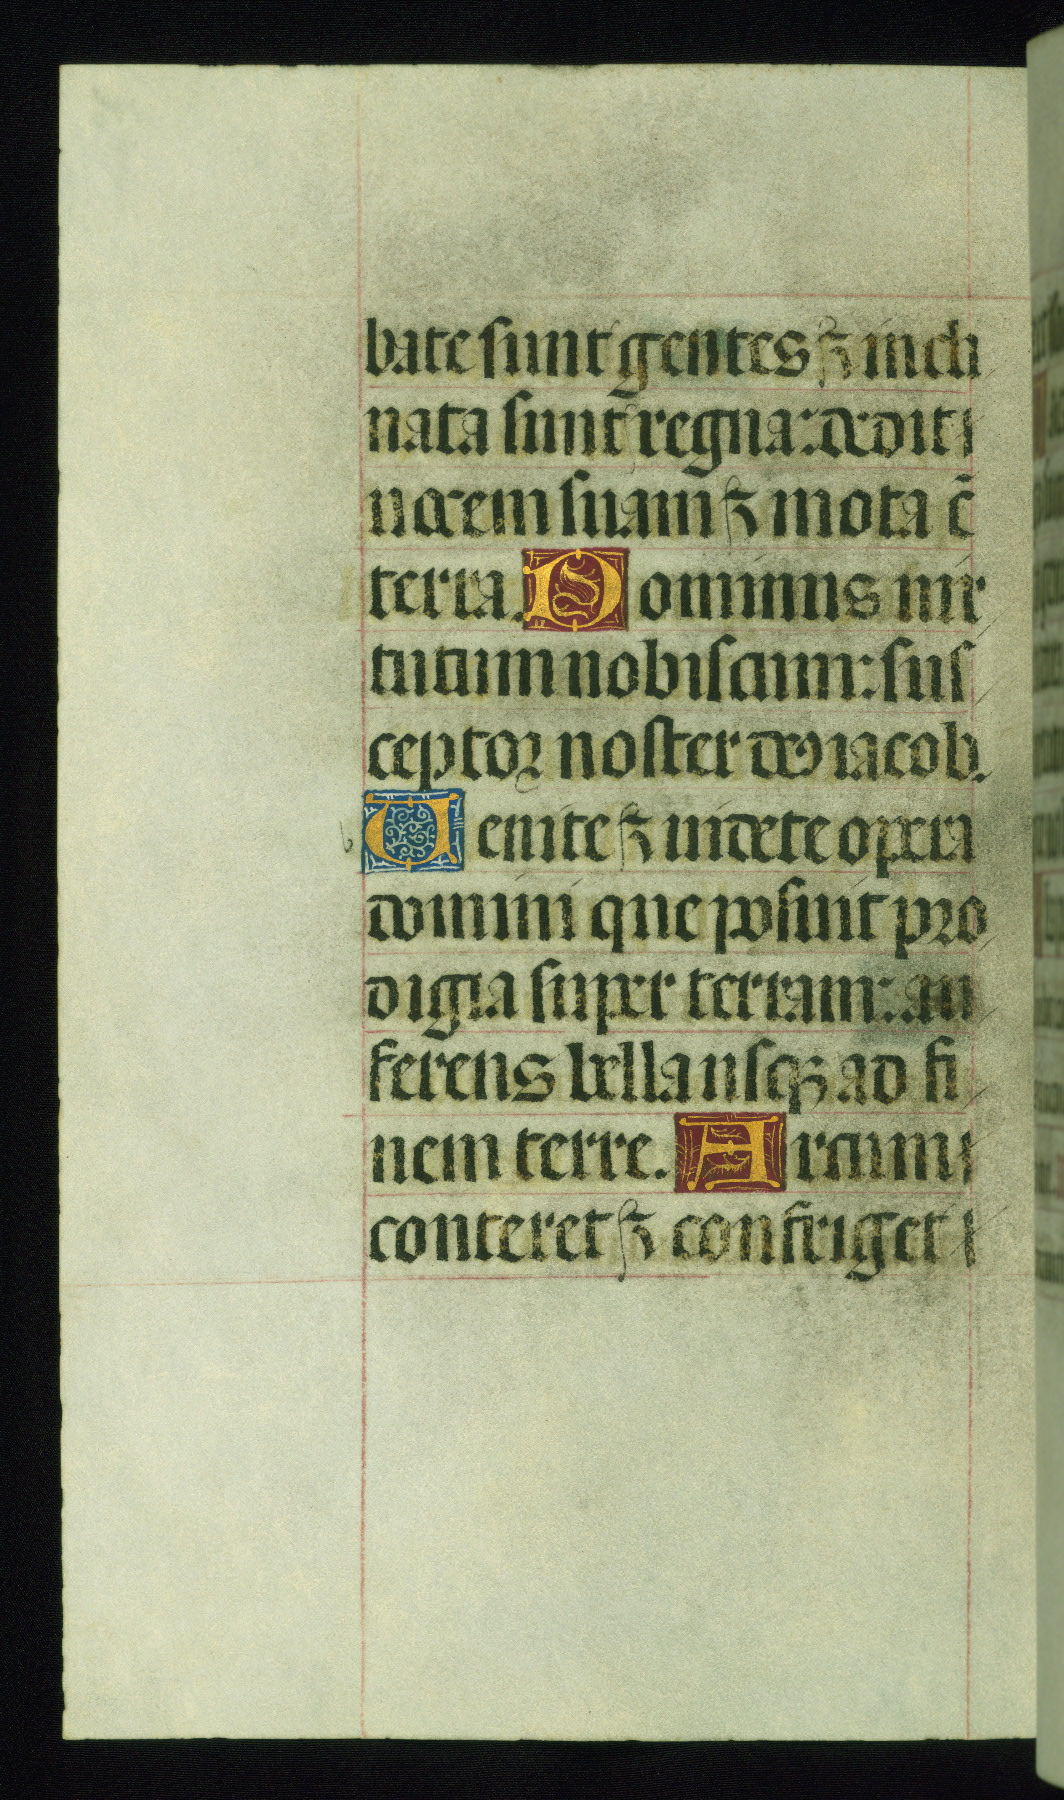 bate sunt gentes ⁊ incli
nata sunt regna: dedit
uocem suam ⁊ mota ē
terra. Dominus uir
tutum nobiscum: sus
ceptor noster deꝰ iacob.
b
Uenite ⁊ uidete opera
domini que posuit pro
digia super terram: au
ferens bella usqꝫ ad fi
nem terre. Arcum
conteret ⁊ confriget